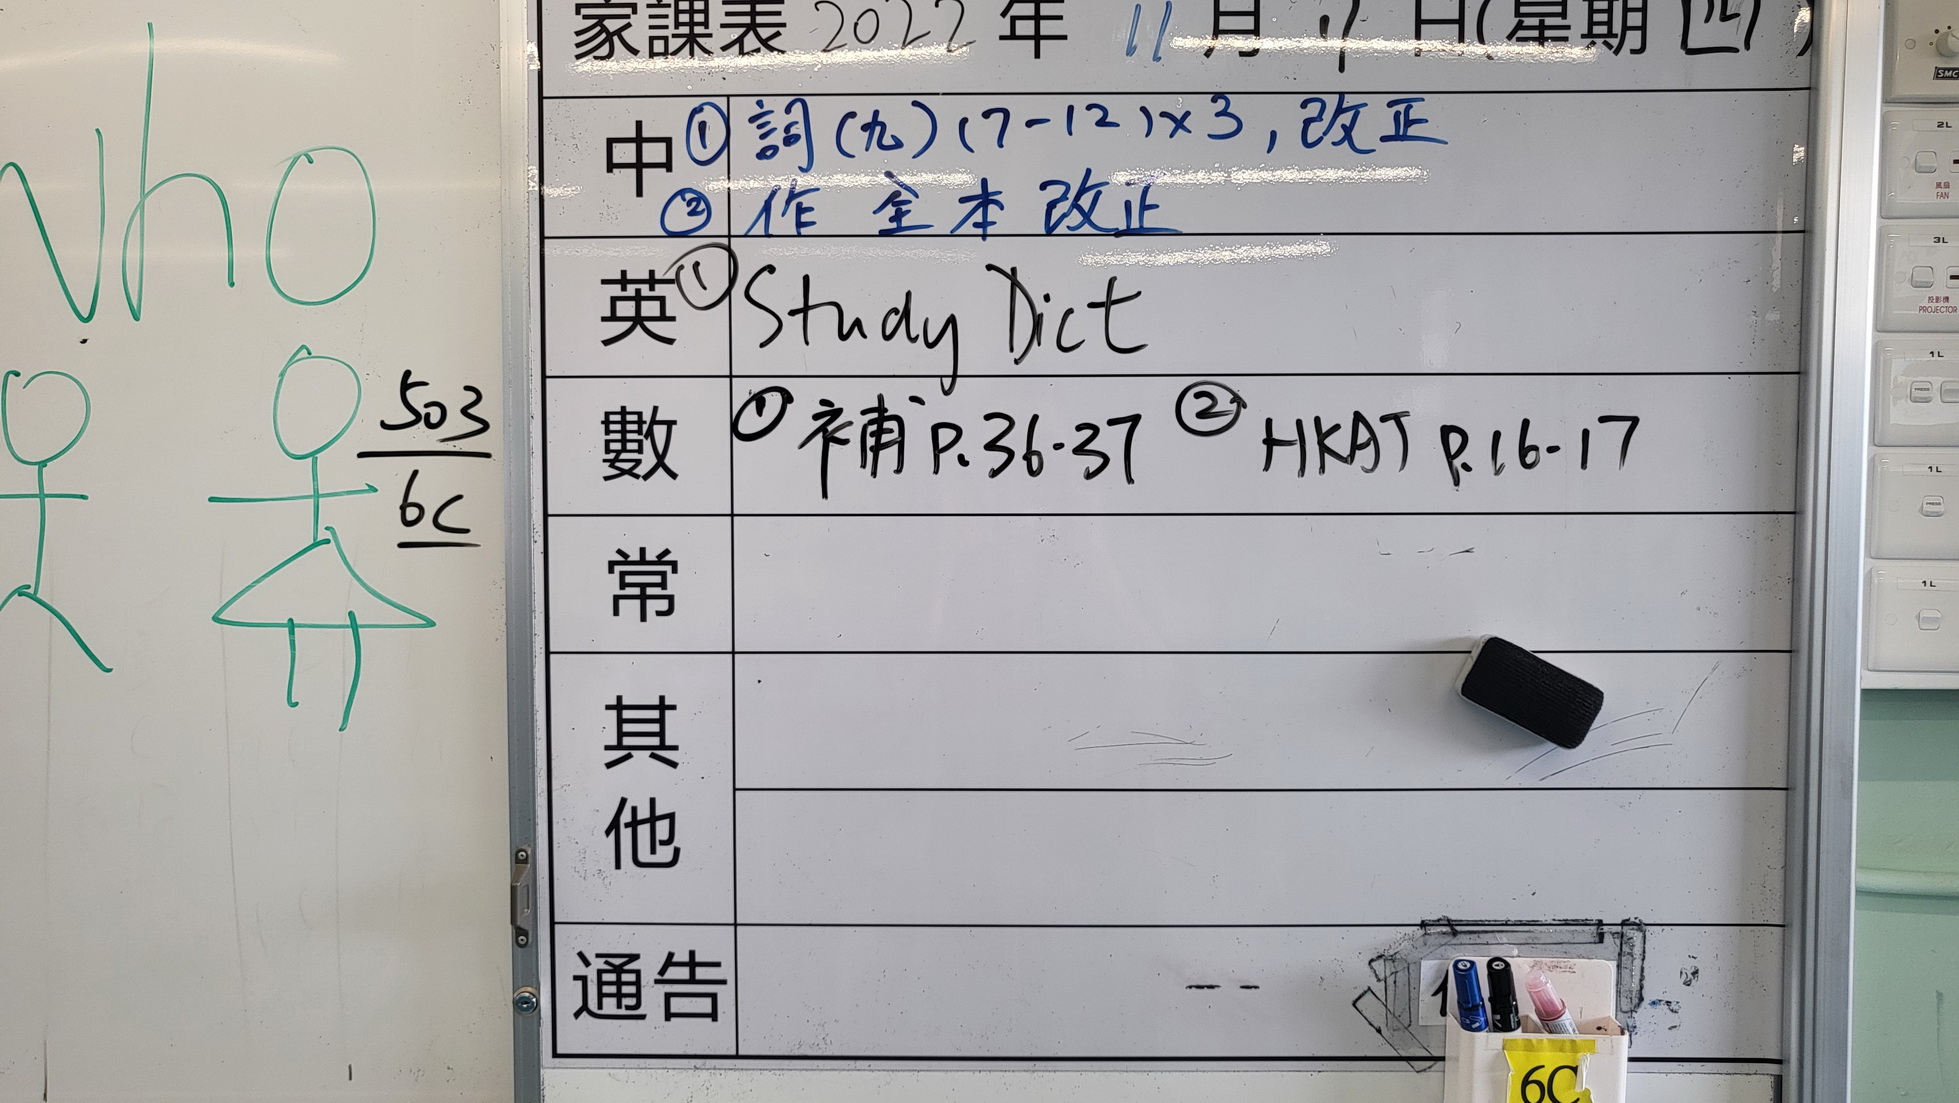 Who
503
6C
家課表 2022 年 11 月 17 日(星期 四 )
中 ① 詞(九)(7-12)×3, 改正
② 作 全本 改正
英 ① Study Dict
數 ① 補 P.36-37 ② HKAT P.16-17
常
其他
通告
6C
SMC
2L
風扇
FAN
3L
投影機
PROJECTOR
1L
PRESS
1L
PRESS
1L